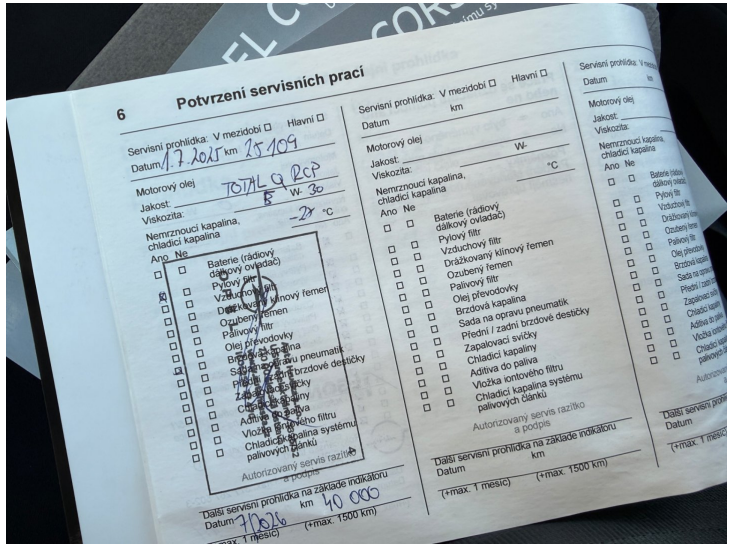 EL CO
CORS
ímu sy
6 Potvrzení servisních prací
Servisní prohlídka: V mezidobí Hlavní
Datum 1.7.2025 km 25 109
Motorový olej
Jakost: TOTAL Q RCP
Viskozita: W- 30
Nemrznoucí kapalina,
chladicí kapalina -27 °C
Ano Ne
Baterie (rádiový
dálkový ovladač)
Pylový filtr
Vzduchový filtr
Drážkovaný klínový řemen
Ozubený řemen
Palivový filtr
Olej převodovky
Brzdová kapalina
Sada na opravu pneumatik
Přední / zadní brzdové destičky
Zapalovací svíčky
Chladicí kapaliny
Aditiva do paliva
Vložka iontového filtru
Chladicí kapalina systému
palivových článků
Autorizovaný servis razítko
a podpis
Další servisní prohlídka na základe indikátoru
Datum 7/2026 km 40 000
(+max. 1 mesíc) (+max. 1500 km)
Servisní prohlídka: V mezidobí Hlavní
Datum km
Motorový olej
Jakost:
Viskozita: W-
Nemrznoucí kapalina,
chladicí kapalina °C
Ano Ne
Baterie (rádiový
dálkový ovladač)
Pylový filtr
Vzduchový filtr
Drážkovaný klínový řemen
Ozubený řemen
Palivový filtr
Olej převodovky
Brzdová kapalina
Sada na opravu pneumatik
Přední / zadní brzdové destičky
Zapalovací svíčky
Chladicí kapaliny
Aditiva do paliva
Vložka iontového filtru
Chladicí kapalina systému
palivových článků
Autorizovaný servis razítko
a podpis
Další servisní prohlídka na základe indikátoru
Datum km
(+max. 1 mesíc) (+max. 1500 km)
Servisní prohlídka: V me
Datum km
Motorový olej
Jakost:
Viskozita:
Nemrznoucí kapalina,
chladicí kapalina
Ano Ne
Baterie (rádiov
dálkový ovladač)
Pylový filtr
Vzduchový filtr
Drážkovaný klín
Ozubený řemen
Palivový filtr
Olej převodovky
Brzdová kapalina
Sada na opravu
Přední / zadní br
Zapalovací svíčk
Chladicí kapaliny
Aditiva do paliva
Vložka iontového
Chladicí kapa
palivových člán
Autorizovan
Další servisní prohl
Datum
(+max. 1 mesíc)